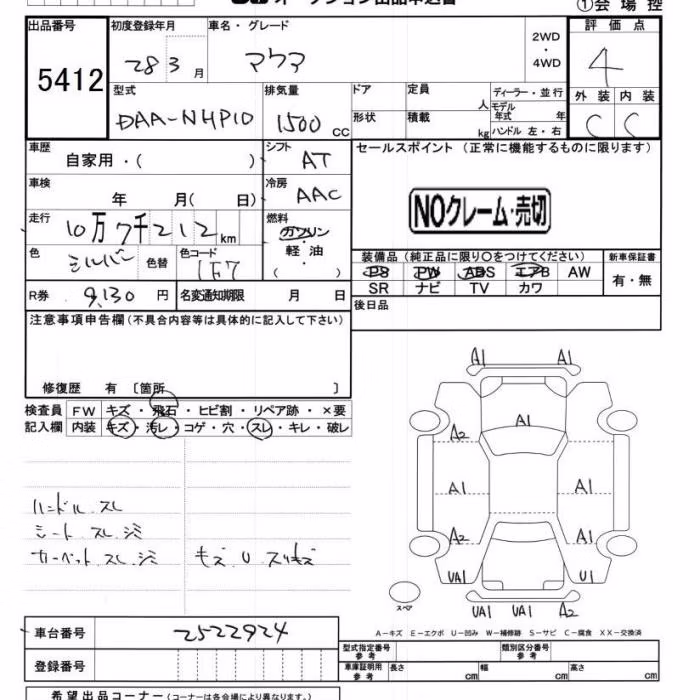 オークション出品申込書 ①会場控
出品番号 初度登録年月 車名・グレード 2WD・4WD 評価点
5412 28 3 月 アクア 4
型式 排気量 ドア 定員 人 ディーラー・並行 外装 内装
DAA-NHP10 1500 cc 形状 積載 kg モデル年式 年 ハンドル 左・右 C C
車歴 シフト セールスポイント (正常に機能するものに限ります)
自家用・( ) AT
車検 年 月( 日) 冷房 AAC
NOクレーム・売切
走行 10万7千212 km 燃料 ガソリン
軽・油
( )
色 シルバー 色替 色コード 1F7
装備品 (純正品に限り○をつけてください) 新車保証書
PS PW ABS エアB AW 有・無
SR ナビ TV カワ
R券 9,130 円 名変通知期限 月 日
後日品
注意事項申告欄(不具合内容等は具体的に記入して下さい)
修復歴 有 [箇所 ]
検査員 FW キズ・飛石・ヒビ割・リペア跡・×要
記入欄 内装 キズ・汚レ・コゲ・穴・スレ・キレ・破レ
ハンドル スレ
シート スレ シミ
カーペット スレ シミ キズ U スリキズ
A1 A1
A1
A2
A1 A1
A2 A1
UA1 U1
スペア
UA1 UA1 A2
A-キズ E-エクボ U-凹み W-補修跡 S-サビ C-腐食 XX-交換済
車台番号 2522924
登録番号
型式指定番号 参考 類別区分番号 参考
車庫証明用 参考 長さ cm 幅 cm 高さ cm
希望出品コーナー(コーナーは各会場により異なります。)